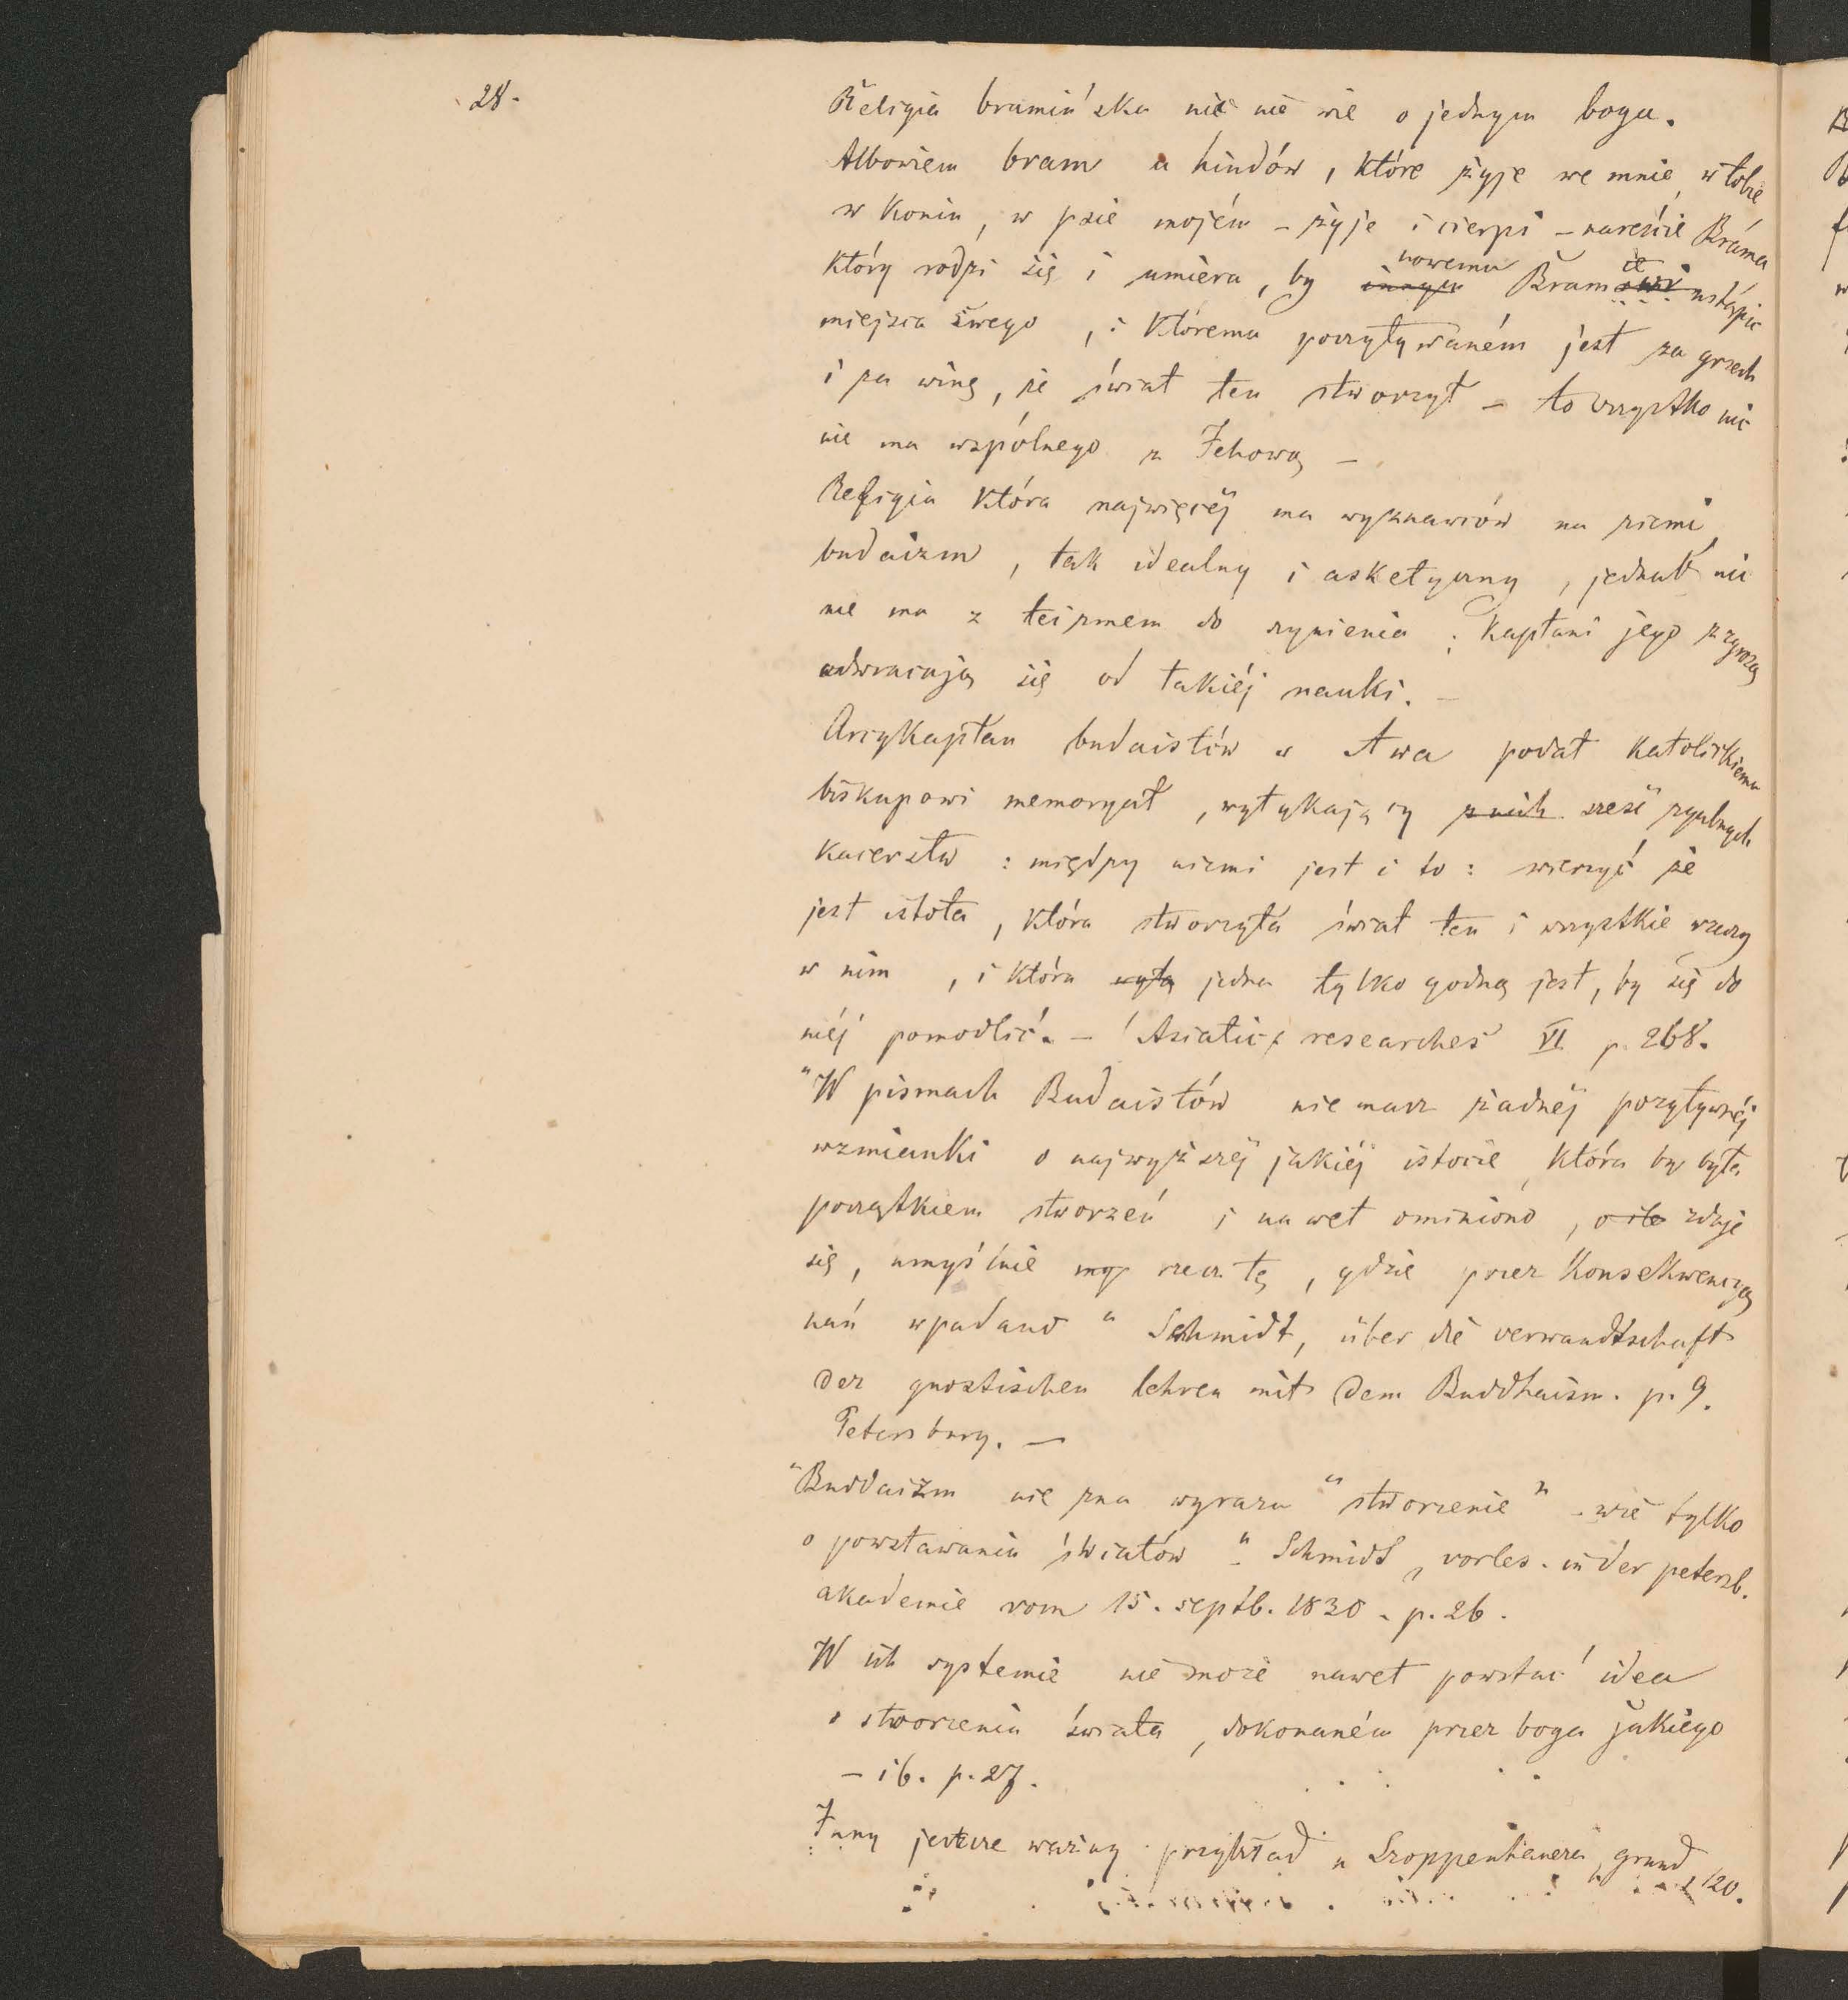 28.
Religia bramińska nic nie wie o jednym bogu.
Albowiem bram u hindów, które żyje we mnie, w tobie
w koniu, w psie mojém – żyje i cierpi – nareście Bráma
który rodzi się i umiera, by innym nowemu Bramie ustąpic
miejsca swego, i któremu poczytywaném jest za grzech
i za winę, że świat ten stworzył – to wszystko nic
nie ma wspólnego z Jehową –
Religia która najwięcéj ma wyznawców na ziemi,
budaizm, tak idealny i asketyczny, jednak nic
nie ma z teizmem do czynienia; kapłani jego z zgrozą
odwracają się od takiéj nauki. –
Arcykapłan budaistów w Awa podał katolickiemu
biskupowi memoryał, wytykający z nich sześć zgubnych
kacerstw: między niemi jest i to: wierzyć że
jest istota, która stworzyła świat ten i wszystkie rzeczy
w nim, i która jedna tylko godną jest, by się do
niéj pomodlić. – (Asiatic researches VI p. 268.
"W pismach Budaistów nie masz żadnéj pozytywnéj
wzmianki o najwyższéj jakiéj istocie, która by była
początkiem stworzeń i nawet ominiono, o ile zdaje
się, umyślnie rzecz tę, gdzie przez konsekwencyą
nań wpadano" Schmidt, über die verwandtschaft
der gnostischen lehren mit dem Buddhaism. p. 9.
Petersburg. –
"Buddaizm nie zna wyrazu "stworzenie" – wie tylko
o powstawaniu światów" Schmidt, vorles. in der petersb.
akademie vom 15. septb. 1830 – p. 26.
W ich systemie nie może nawet powstać idea
o stworzeniu świata, dokonaném przez boga jakiego
– ib. p. 27.
Inny jeszcze ważny przykład u Szoppenhauera, grund
120.